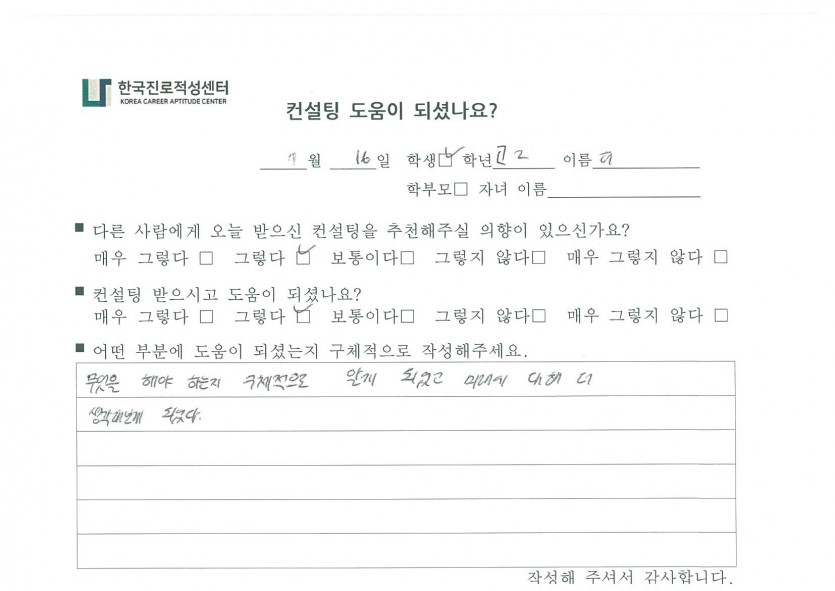 한국진로적성센터
KOREA CAREER APTITUDE CENTER
컨설팅 도움이 되셨나요?
월 16일 학생☑ 학년 고2 이름
학부모□ 자녀 이름
■ 다른 사람에게 오늘 받으신 컨설팅을 추천해주실 의향이 있으신가요?
매우 그렇다 □ 그렇다 ☑ 보통이다□ 그렇지 않다□ 매우 그렇지 않다 □
■ 컨설팅 받으시고 도움이 되셨나요?
매우 그렇다 □ 그렇다 ☑ 보통이다□ 그렇지 않다□ 매우 그렇지 않다 □
■ 어떤 부분에 도움이 되셨는지 구체적으로 작성해주세요.
무엇을 해야 하는지 구체적으로 알게 되었고 미래에 대해 더
생각해보게 되었다.
작성해 주셔서 감사합니다.